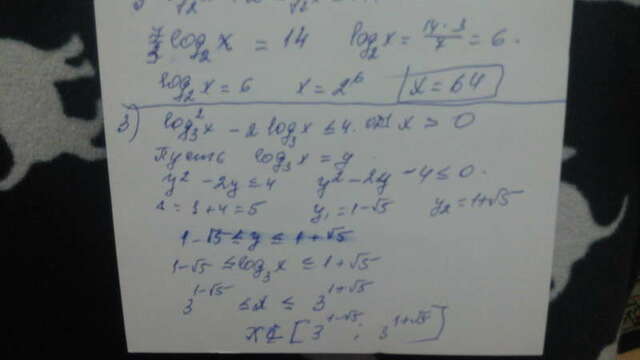 7/3 log₂ x = 14   log₂ x = 14·3/7 = 6.
log₂ x = 6   x = 2⁶   x = 64
3) log₃² x - 2 log₃ x ≤ 4.   x > 0
Пусть log₃ x = y
y² - 2y ≤ 4   y² - 2y - 4 ≤ 0.
= 1 + 4 = 5   y₁ = 1 - √5   y₂ = 1 + √5
1 - √5 ≤ y ≤ 1 + √5
1 - √5 ≤ log₃ x ≤ 1 + √5
3^(1-√5) ≤ x ≤ 3^(1+√5)
x ∈ [3^(1-√5); 3^(1+√5)]